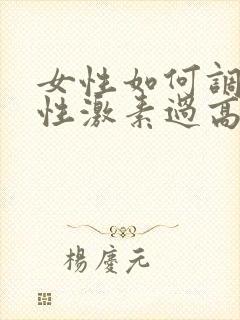 女性如何調
性激素過高
楊慶元